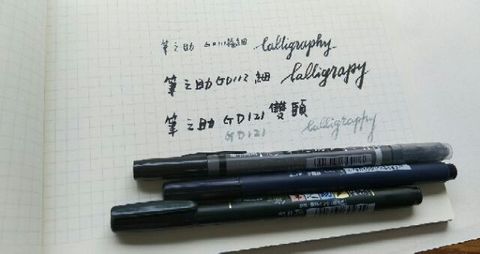 筆之助 GD111極細 Calligraphy
筆之助GD112 細 Calligrapy
筆之助GD121雙頭
GD121 Calligrapphy